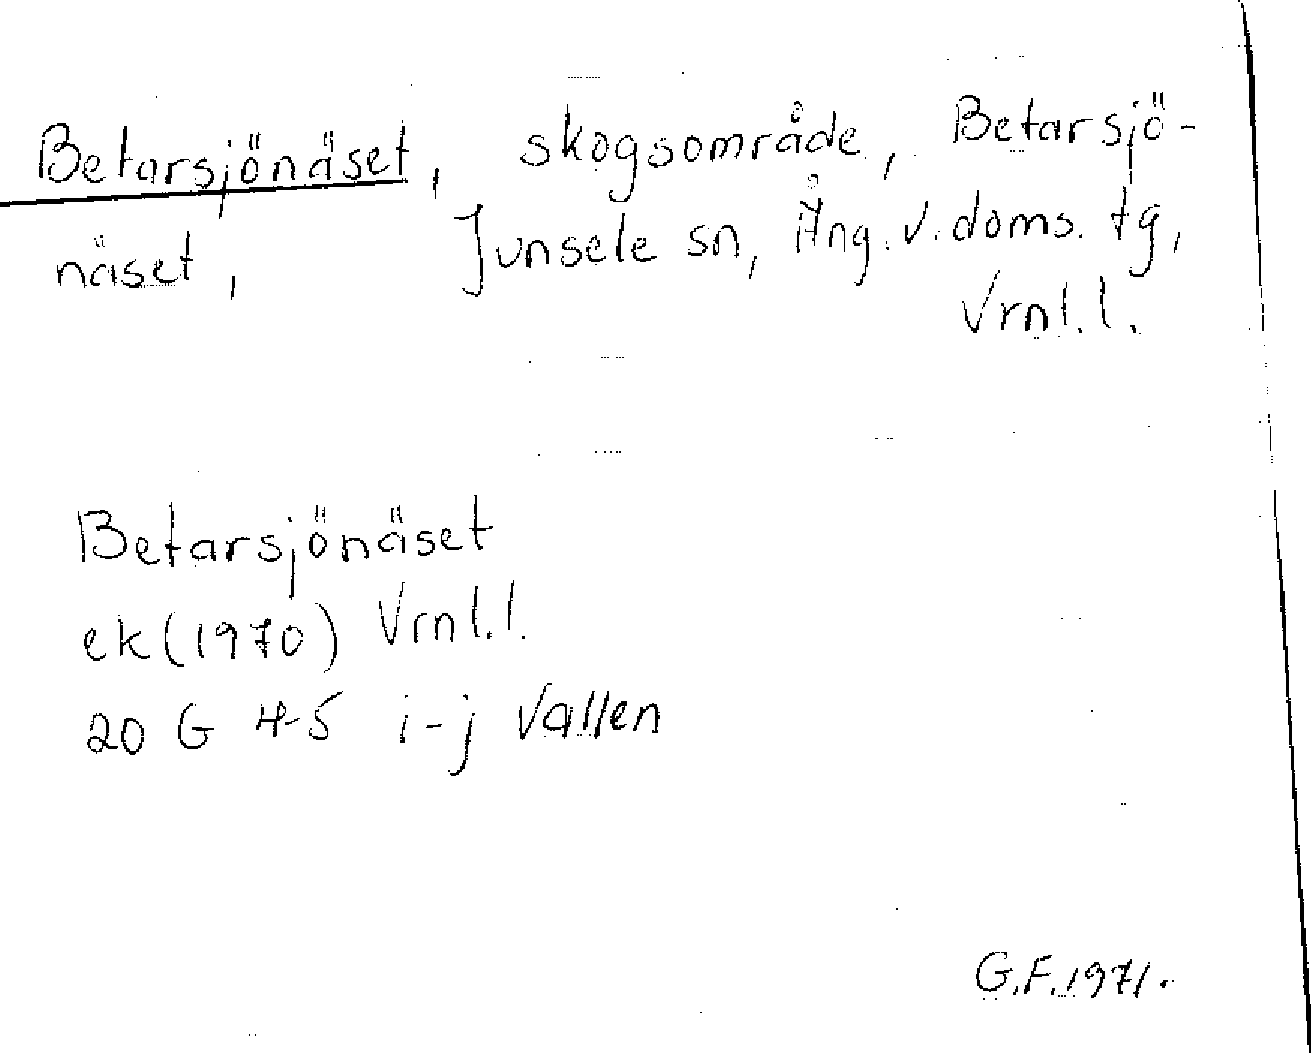 Betarsjönäset, skogsområde, Betarsjö-
näset, Junsele sn, Ång. v. doms. tg,
Vrnl.l.
Betarsjönäset
ek (1970) Vrnl.l.
20 G 4-5 i-j Vallen
G.F. 1971.